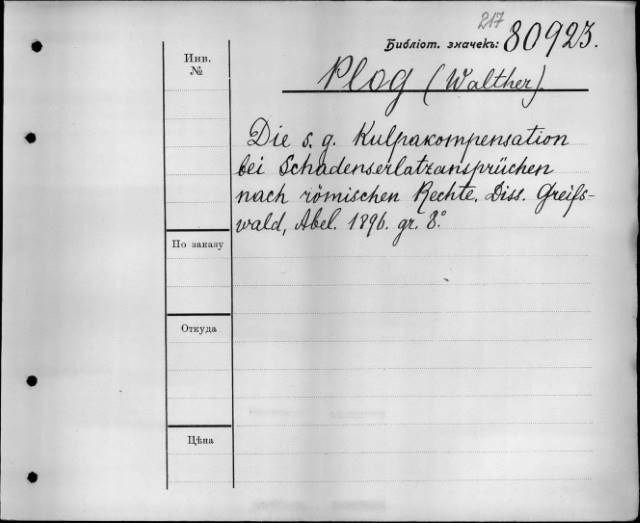 217
Библіот. значекъ: 80923.
Инв. №
Plog (Walther).
Die s. g. Kulpakompensation
bei Schadenserlatzansprüchen
nach römischen Rechte. Diss. Greifs-
wald, Abel. 1896. gr. 8.°
По заказу
Откуда
Цѣна